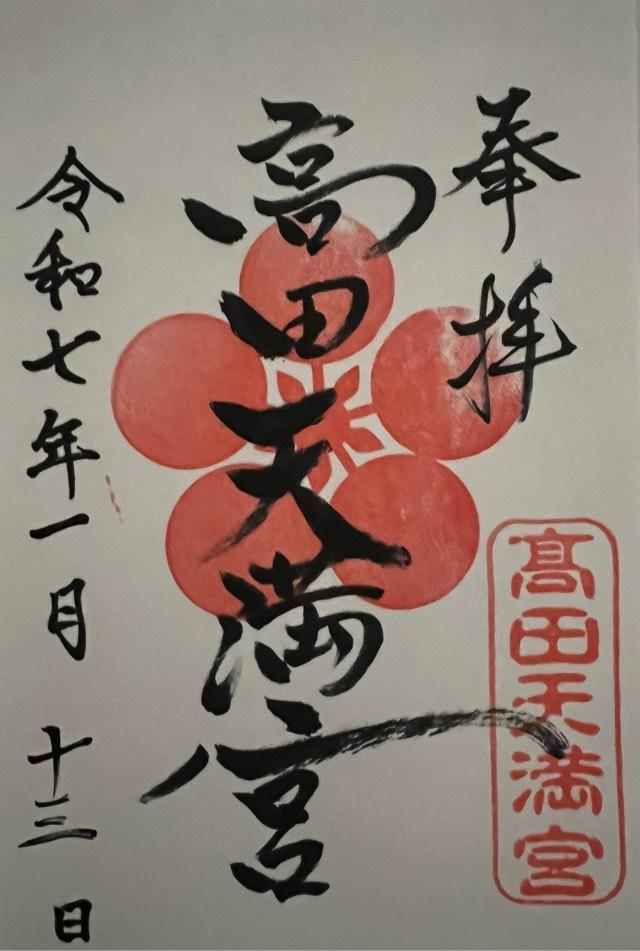 奉拝
高田天満宮
令和七年一月十三日
髙田天満宮